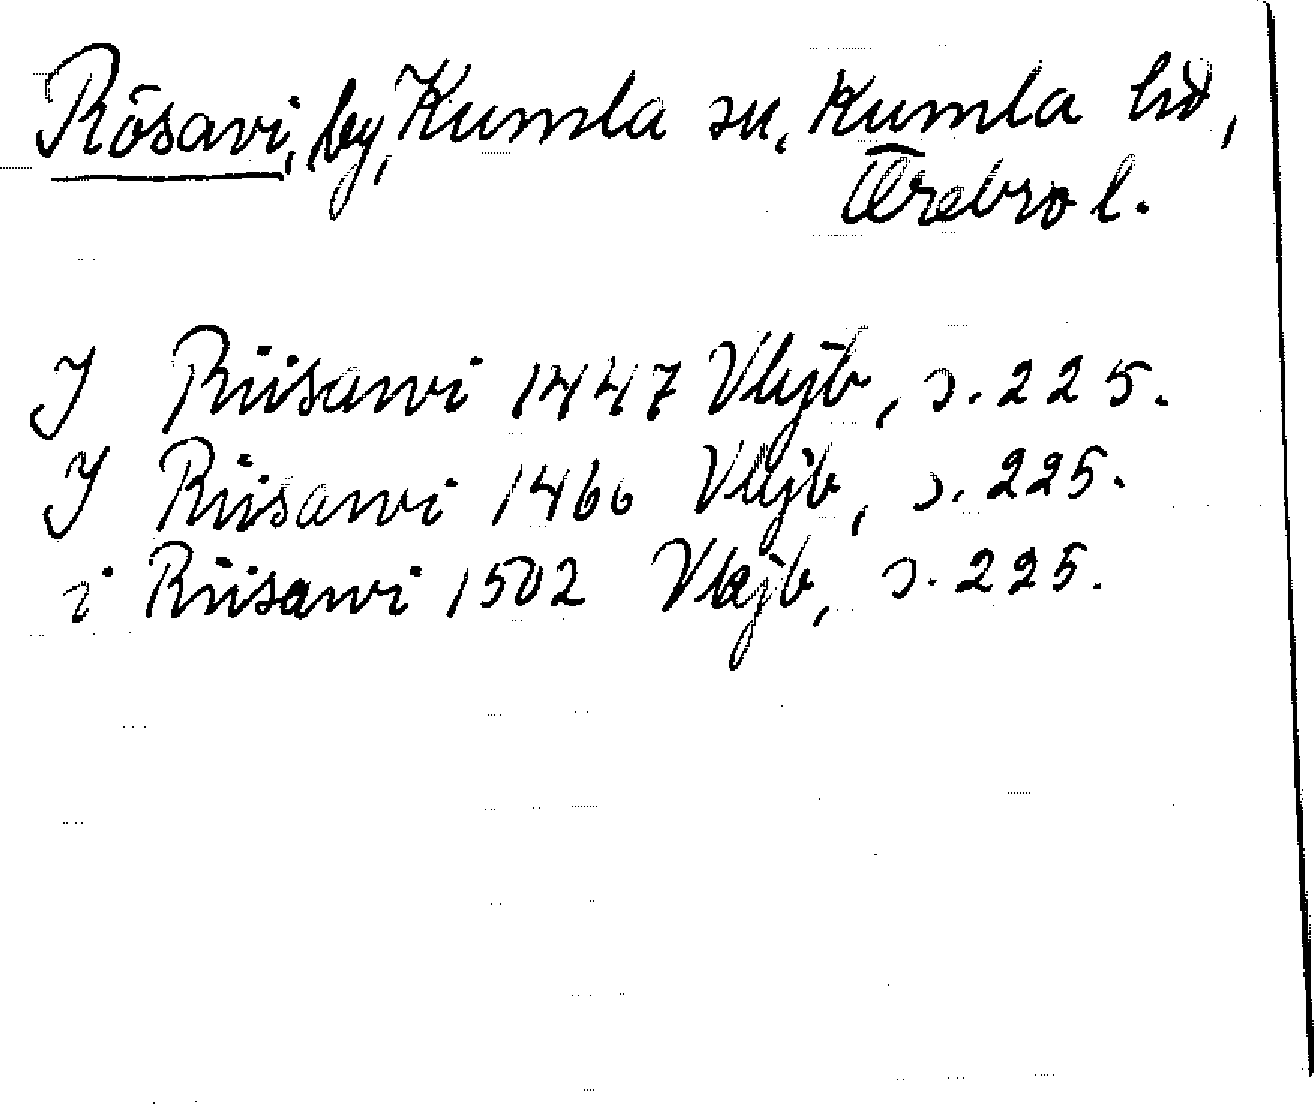 Rösavi, by, Kumla sn, Kumla hd,
Örebro l.
I Riisawi 1447 Vkjb, s. 225.
I Riisawi 1466 Vkjb, s. 225.
i Riisawi 1502 Vkjb, s. 225.